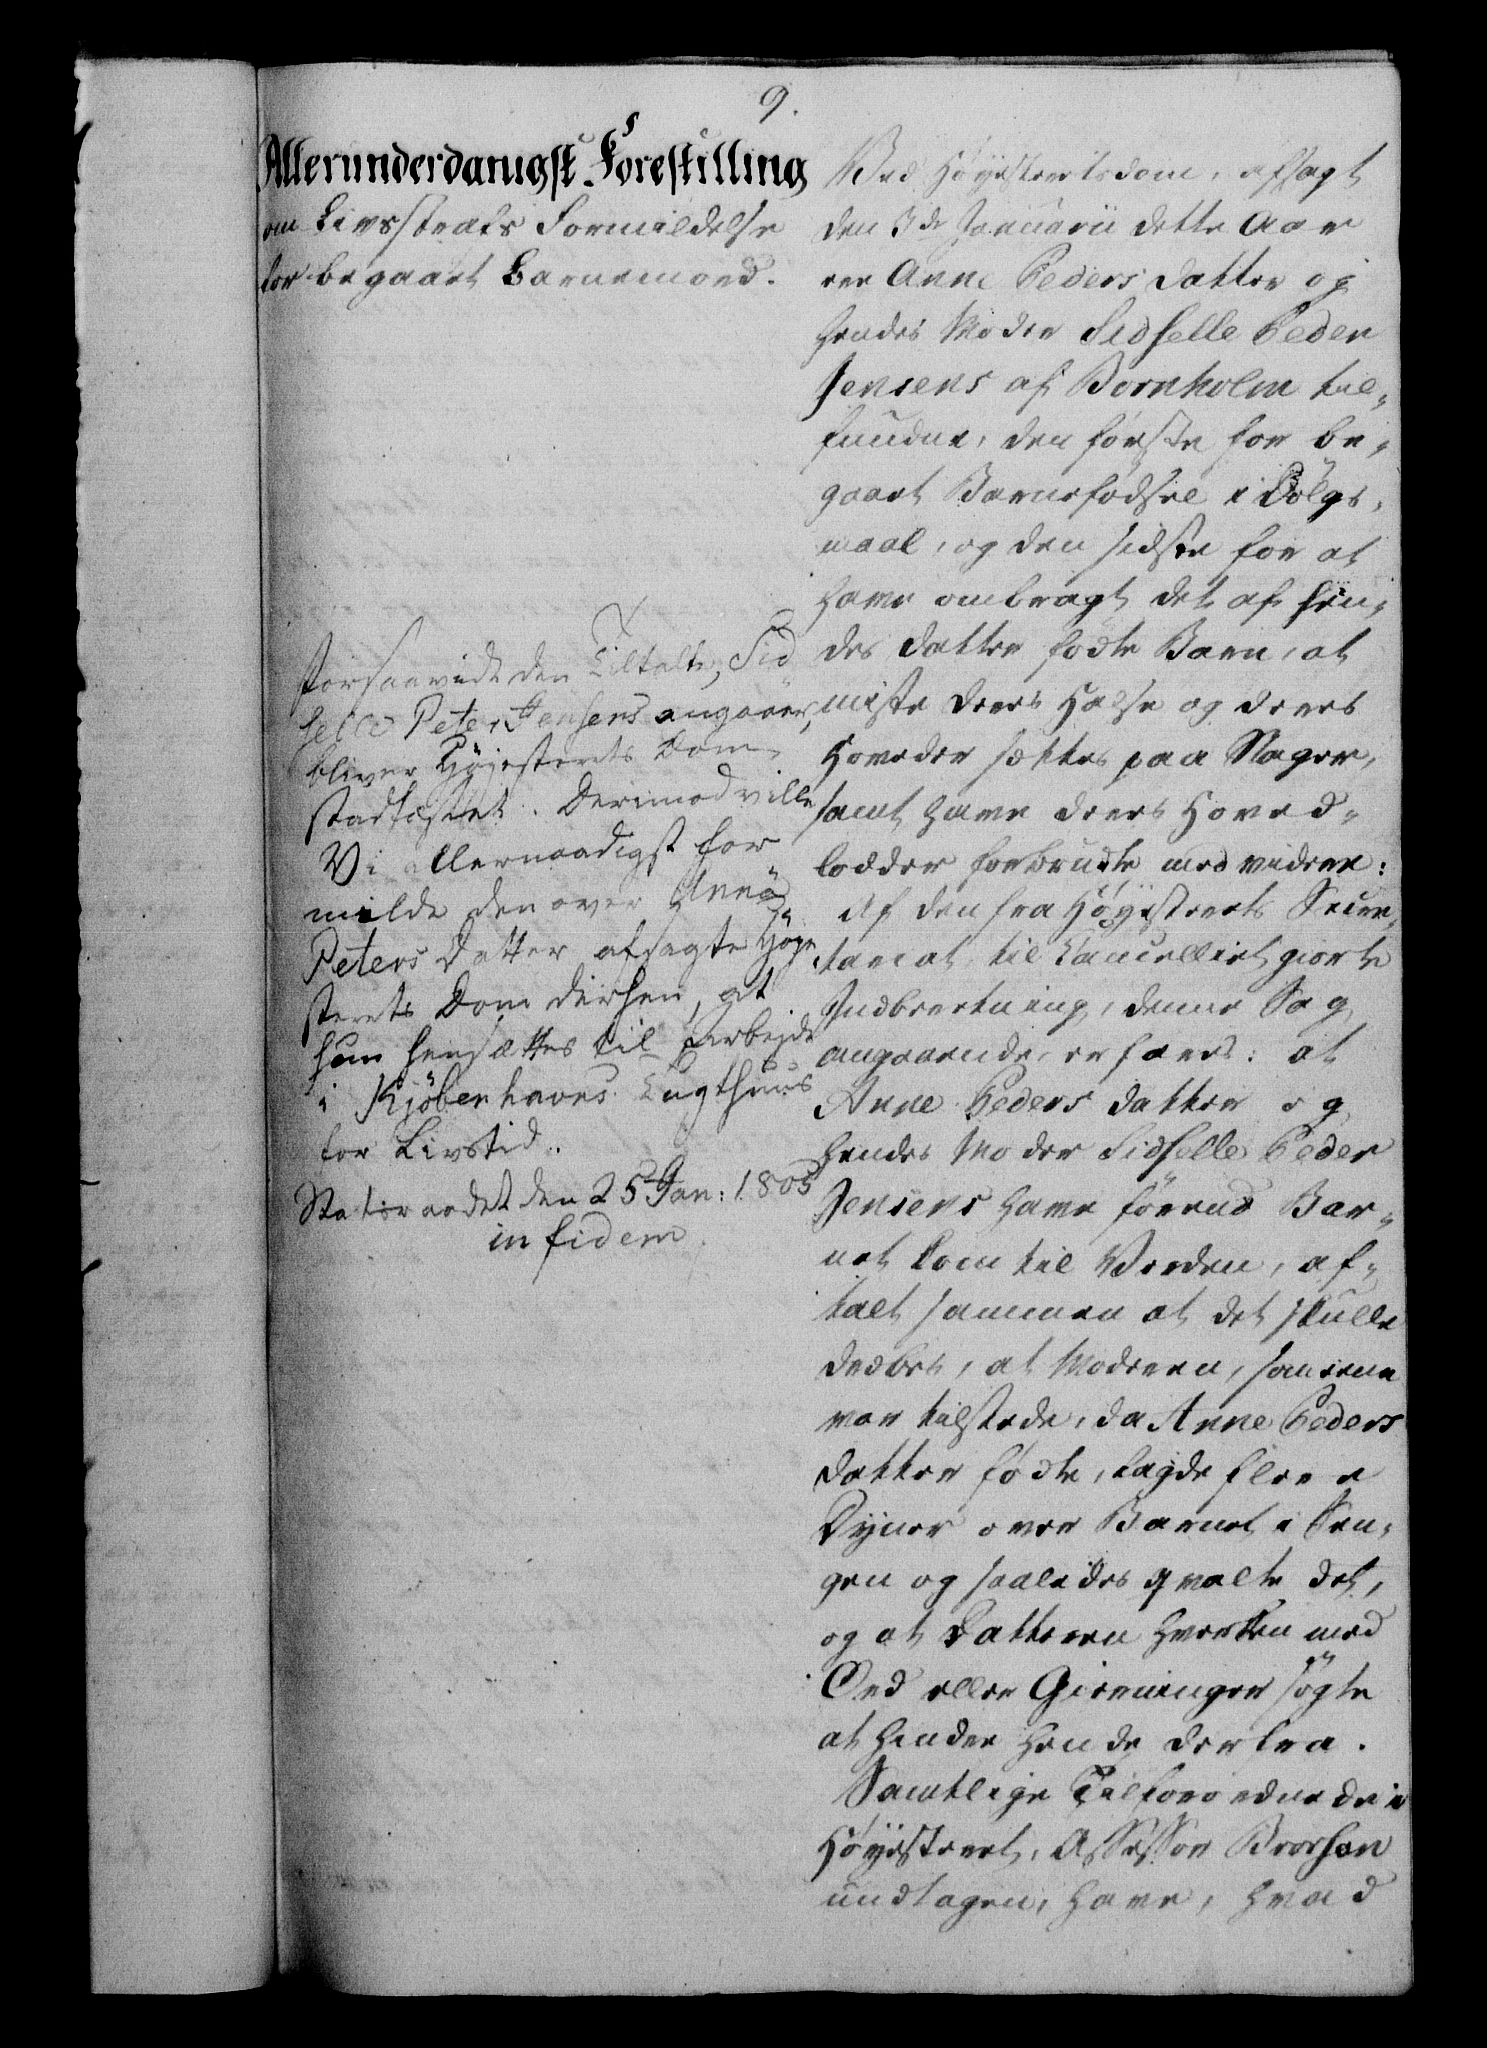 9.
Allerunderdanigst Forestilling
om Livsstrafs Formildelse
for begaaet Barnemord.
Forsaavidt den Tiltalte, Sid
selle Peter Jensens angaaer,
bliver Høiesterets Dom
stadfæstet. Derimod ville
Vi allernaadigst for
milde den over Anne
Peters Datter afsagte Høye
sterets Dom derhen, at
hun hensættes til Arbejde
i Kjøbenhavns Tugthuus
for Livstid.
Statsraadet den 25 Jan: 1805
in fidem
Ved Høyesteretsdom, afsagt
den 3de Januarii dette Aar
ere Anne Peders Datter og
hendes Moder Sidselle Peder
Jensens af Bornholm til-
fundne, den første for be-
gaaet Barnefødsel i Dølgs-
maal, og den sidste for at
have ombragt det af hen-
des Datter fødte Barn, at
miste deres Halse og deres
Hoveder sættes paa Stager,
samt have deres Hoved-
lodder forbrudte med videre:
Af den fra Høyesterets Secre-
tariat til Cancelliet giorte
Indberetning, denne Sag
angaaende, erfares: at
Anne Peders Datter og
hendes Moder Sidselle Peder
Jensens have førend Bar-
net kom til Verden, af-
talt sammen at det skulle
dræbes, at Moderen, som ene
var tilstede, da Anne Peders
Datter fødte, lagde flere
Dyner over Barnet i Sen-
gen og saaledes qvalte det,
og at Datteren hverken med
Ord eller Gierninger søgte
at hindre hende derfra.
Samtlige Tilforordnede i
Høyesteret, Assessor Brorson
undtagen, have, hvad